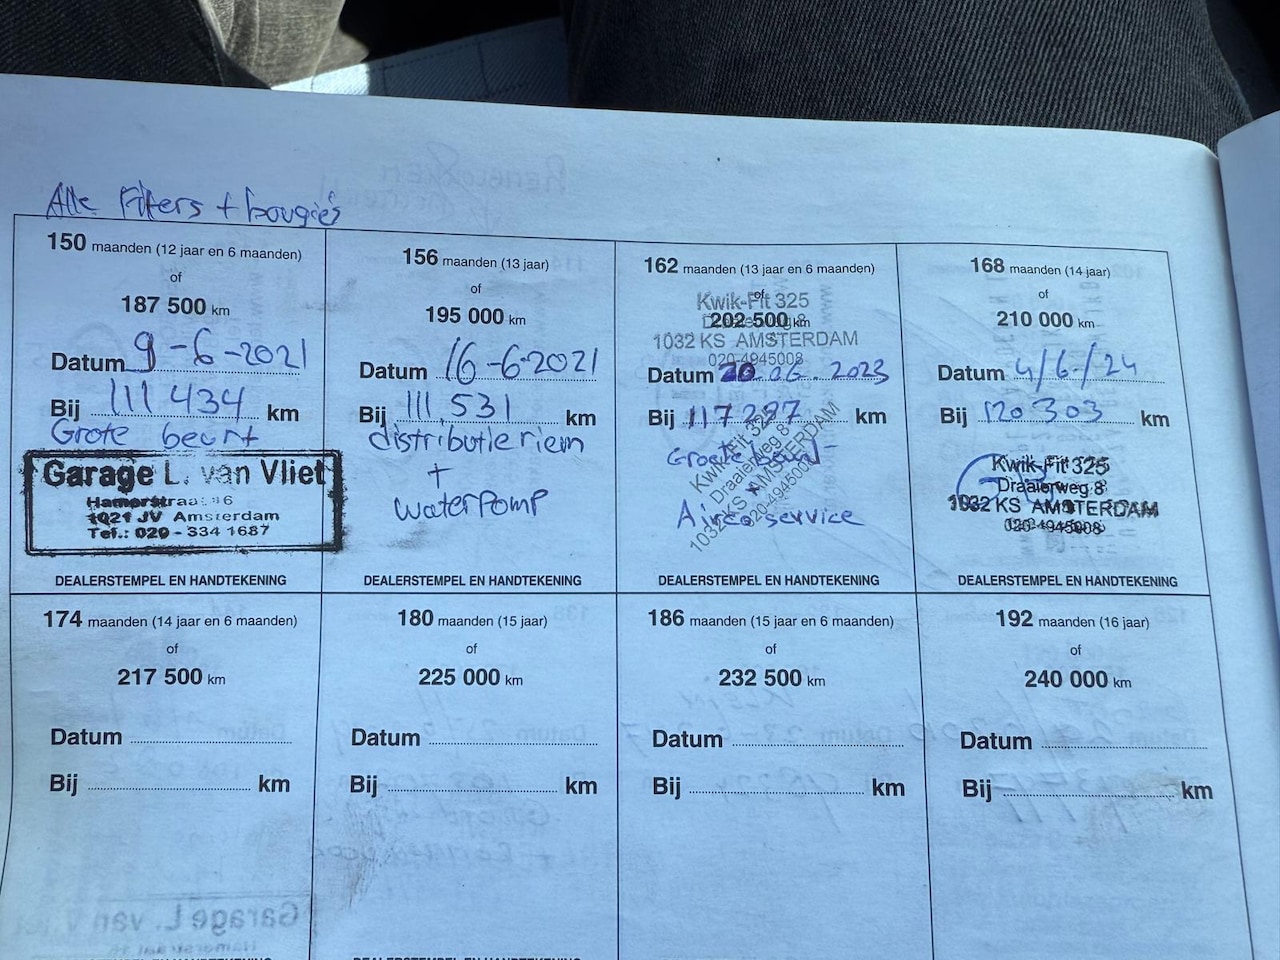 Alle Filters + bougies
150 maanden (12 jaar en 6 maanden)
of
187 500 km
Datum 9-6-2021
Bij 111 434 km
Grote beurt
Garage L. van Vliet
Hamerstraat 6
1021 JV Amsterdam
Tel.: 020 - 334 1687
DEALERSTEMPEL EN HANDTEKENING
156 maanden (13 jaar)
of
195 000 km
Datum 16-6-2021
Bij 111 531 km
distributie riem
+
waterpomp
DEALERSTEMPEL EN HANDTEKENING
162 maanden (13 jaar en 6 maanden)
of
202 500 km
Kwik-Fit 325
Draaierweg 8
1032 KS AMSTERDAM
020-4945008
Datum 20.06.2023
Bij 117 297 km
Grote beurt
Kwik-Fit 325
Draaierweg 8
1032 KS AMSTERDAM
020-4945008
Airco service
DEALERSTEMPEL EN HANDTEKENING
168 maanden (14 jaar)
of
210 000 km
Datum 4/6/24
Bij 120 303 km
Kwik-Fit 325
Draaierweg 8
1032 KS AMSTERDAM
020-4945008
DEALERSTEMPEL EN HANDTEKENING
174 maanden (14 jaar en 6 maanden)
of
217 500 km
Datum
Bij km
180 maanden (15 jaar)
of
225 000 km
Datum
Bij km
186 maanden (15 jaar en 6 maanden)
of
232 500 km
Datum
Bij km
192 maanden (16 jaar)
of
240 000 km
Datum
Bij km